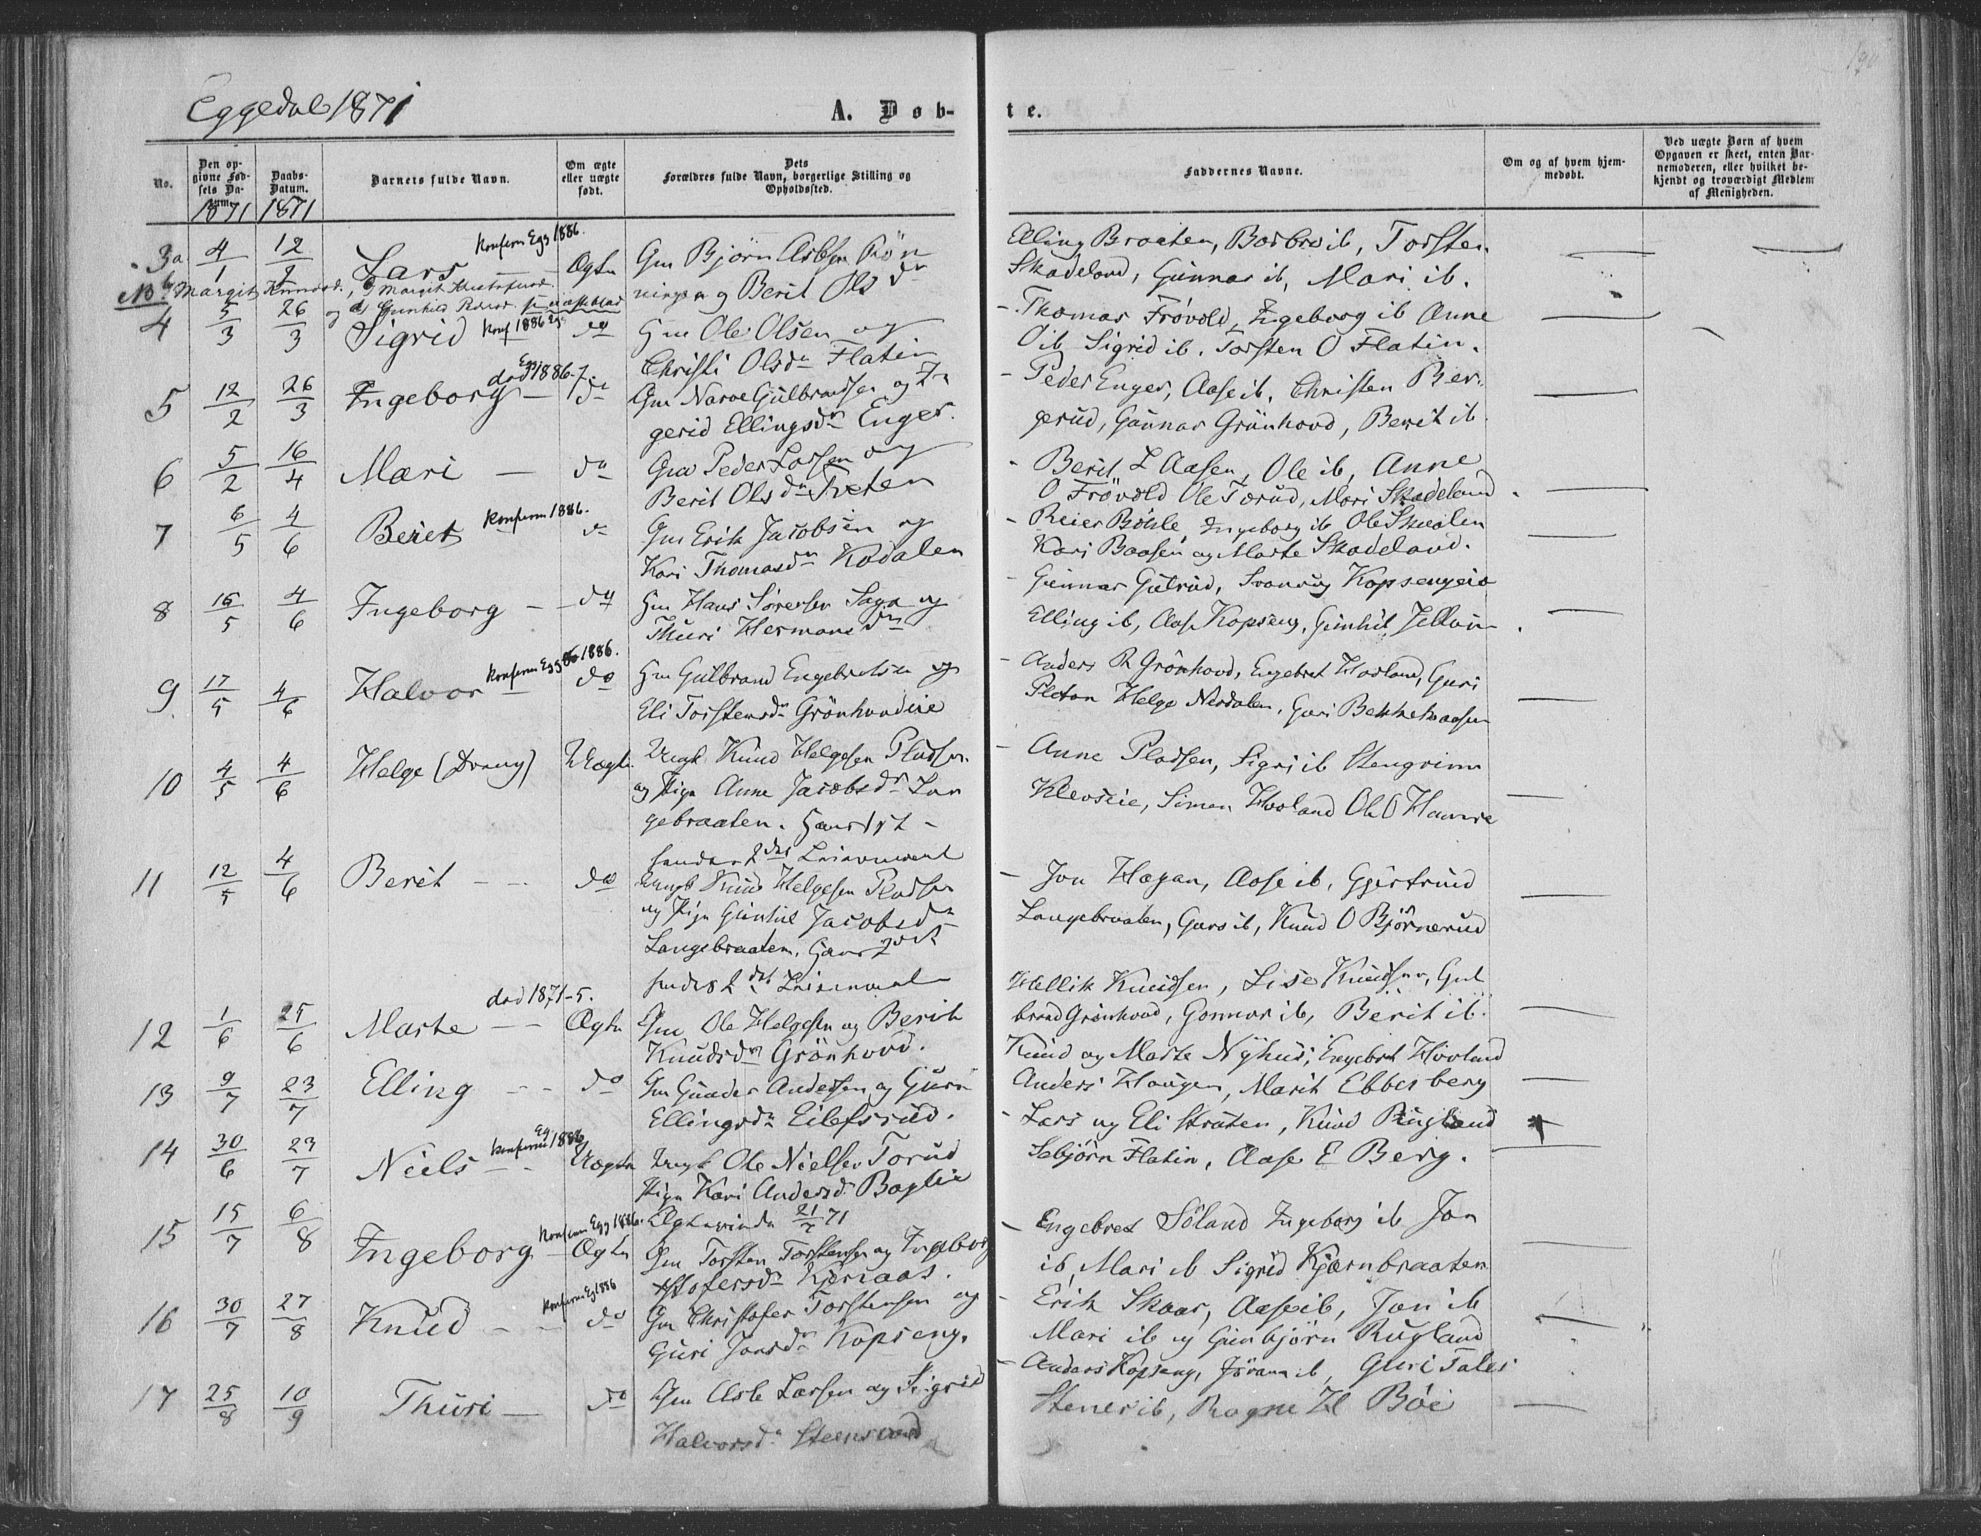 190
Eggedal 1871
A. Døb-
te.
No.
Den op-
givne Fød-
sels Da-
tum.
1871
Daabs-
Datum.
1871
Barnets fulde Navn.
Om ægte
eller uægte
født.
Dets
Forældres fulde Navn, borgerlige Stilling og
Opholdssted.
Faddernes Navne.
Om og af hvem hjem-
medøbt.
Ved uægte Børn af hvem
Opgaven er skeet, enten Bar-
nemoderen, eller hvilket be-
kjendt og troværdigt Medlem
af Menigheden.
3a 4/1 12/2 Lars Konfirm Egg 1886. Ægte Gm Bjørn Asbsen Røn
ningen og Berit Olsdr
Elling Braaten, Barbro ib, Torsten
Skadeland, Gunnar ib, Mari ib.
No b Margit
4 5/3 26/3 Sigrid Konf 1886 do Gm Ole Olsen og
Christi Olsdr Flatin
Thomas Frøvold, Ingeborg ib Anne
O ib Sigrid ib. Torsten O Flatin.
5 12/2 26/3 Ingeborg død 1886 do Gm Narve Gulbrandsen og In
gerid Ellingsdr Enger.
Peder Enger, Aase ib, Christen Ber
gerud, Gunnar Grønhovd, Berit ib.
6 5/2 16/4 Mari do Gm Peder Larsen og
Berit Olsdr Tveten
Berit L Aasen, Ole ib, Anne
O Frøvold Ole Torud, Mari Skadeland
7 6/5 4/6 Berit Konfirm 1886. do Gm Erik Jacobsen og
Kari Thomasdr Kodalen
Reier Bøhle Ingeborg ib Ole Skualen
Kari Baasen og Marte Skadeland.
8 16/5 4/6 Ingeborg do Gm Hans Sørensen Saga og
Thuri Hermansdr
Gunnar Gulrud, Kopsengeie
Elling ib, Aase Kopseng, Gunhil
9 17/5 4/6 Halvor Konfirm Egg 1886. do Gm Gulbrand Engebretsen og
Eli Torstensdr Grønhovdeie
Anders R Grønhovd, Engebret Hovland, Guri
Helge Nesdalen, Guri
10 4/5 4/6 Helge (Dreng) Uægte Ungk Knud Helgesen Pladsen
og Pige Anne Jacobsdr Lan
gebraaten. Hans 1st
Anne Pladsen, Sigri ib Stengrim
Kleveie, Simen Hovland Ole O Hamre
11 12/5 4/6 Berit do Ungk Knud Helgesen Pladsen
og Pige Gunhil Jacobsdr
Langebraaten. Hans 2det
Jon Hagan, Aase ib, Gjertrud
Langebraaten, Guro ib, Knud O Bjørnerud
12 1/6 25/6 Marte død 1871-5. Ægte Gm Ole Helgesen og Berit
Knudsdr Grønhovd.
Hellik Knudsen, Lise Knudsen, Gul
brand Grønhovd, Gunnar ib, Berit ib.
13 9/7 23/7 Elling do Gm Gunder Andersen og Guri
Ellingsdr Eilefsrud.
Knud og Marte Nyhus, Engebret Hovland
Anders Haugen, Marit Ebbesberg
14 30/6 23/7 Niels Konfirm Eg 1886 Uægte Ungk Ole Nielsen Torud
Pige Kari Andersdr Baplie
Lars og Eli Straten, Knud Rugland
Sebjørn Flatin, Aase E Berg.
15 15/7 6/8 Ingeborg Konfirm Egg 1886. Ægte 21/7 71
Gm Torsten Torstensen og Ingeborg
Kristofersdr Kjernaas.
Engebret Søland Ingeborg ib Jon
ib, Mari ib Sigrid Kjærnbraaten
16 30/7 27/8 Knud Konfirm Eg 1886 do Gm Christofer Torstensen og
Guri Jonsdr Kopseng.
Erik Skaar, Aase ib, Jon ib
Mari ib og Gunbjørn Rugland
17 25/8 10/9 Thuri do Gm Asle Larsen og Sigrid
Halvorsdr Steensrud
Anders Kopseng, Jøran ib, Guri
Stener ib, Ragne H Bøe